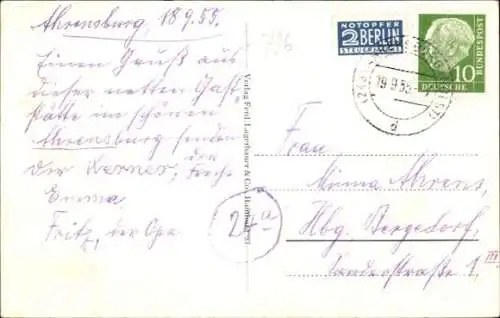 Ahrensburg, 18 9.55.
Einen Gruß aus
dieser netten Gast-
stätte im schönen
Ahrensburg senden
Dir Werner, der
Emma
Fritz, der Opa
Verlag Ferd. Lagerbauer & Co., Hamburg
NOTOPFER
2 BERLIN
STEUERMARKE
10
DEUTSCHE
BUNDESPOST
19.9.55
d
Frau
Minna Ahrens,
Hbg. Bergedorf,
Sanderstraße 1.
III
24a